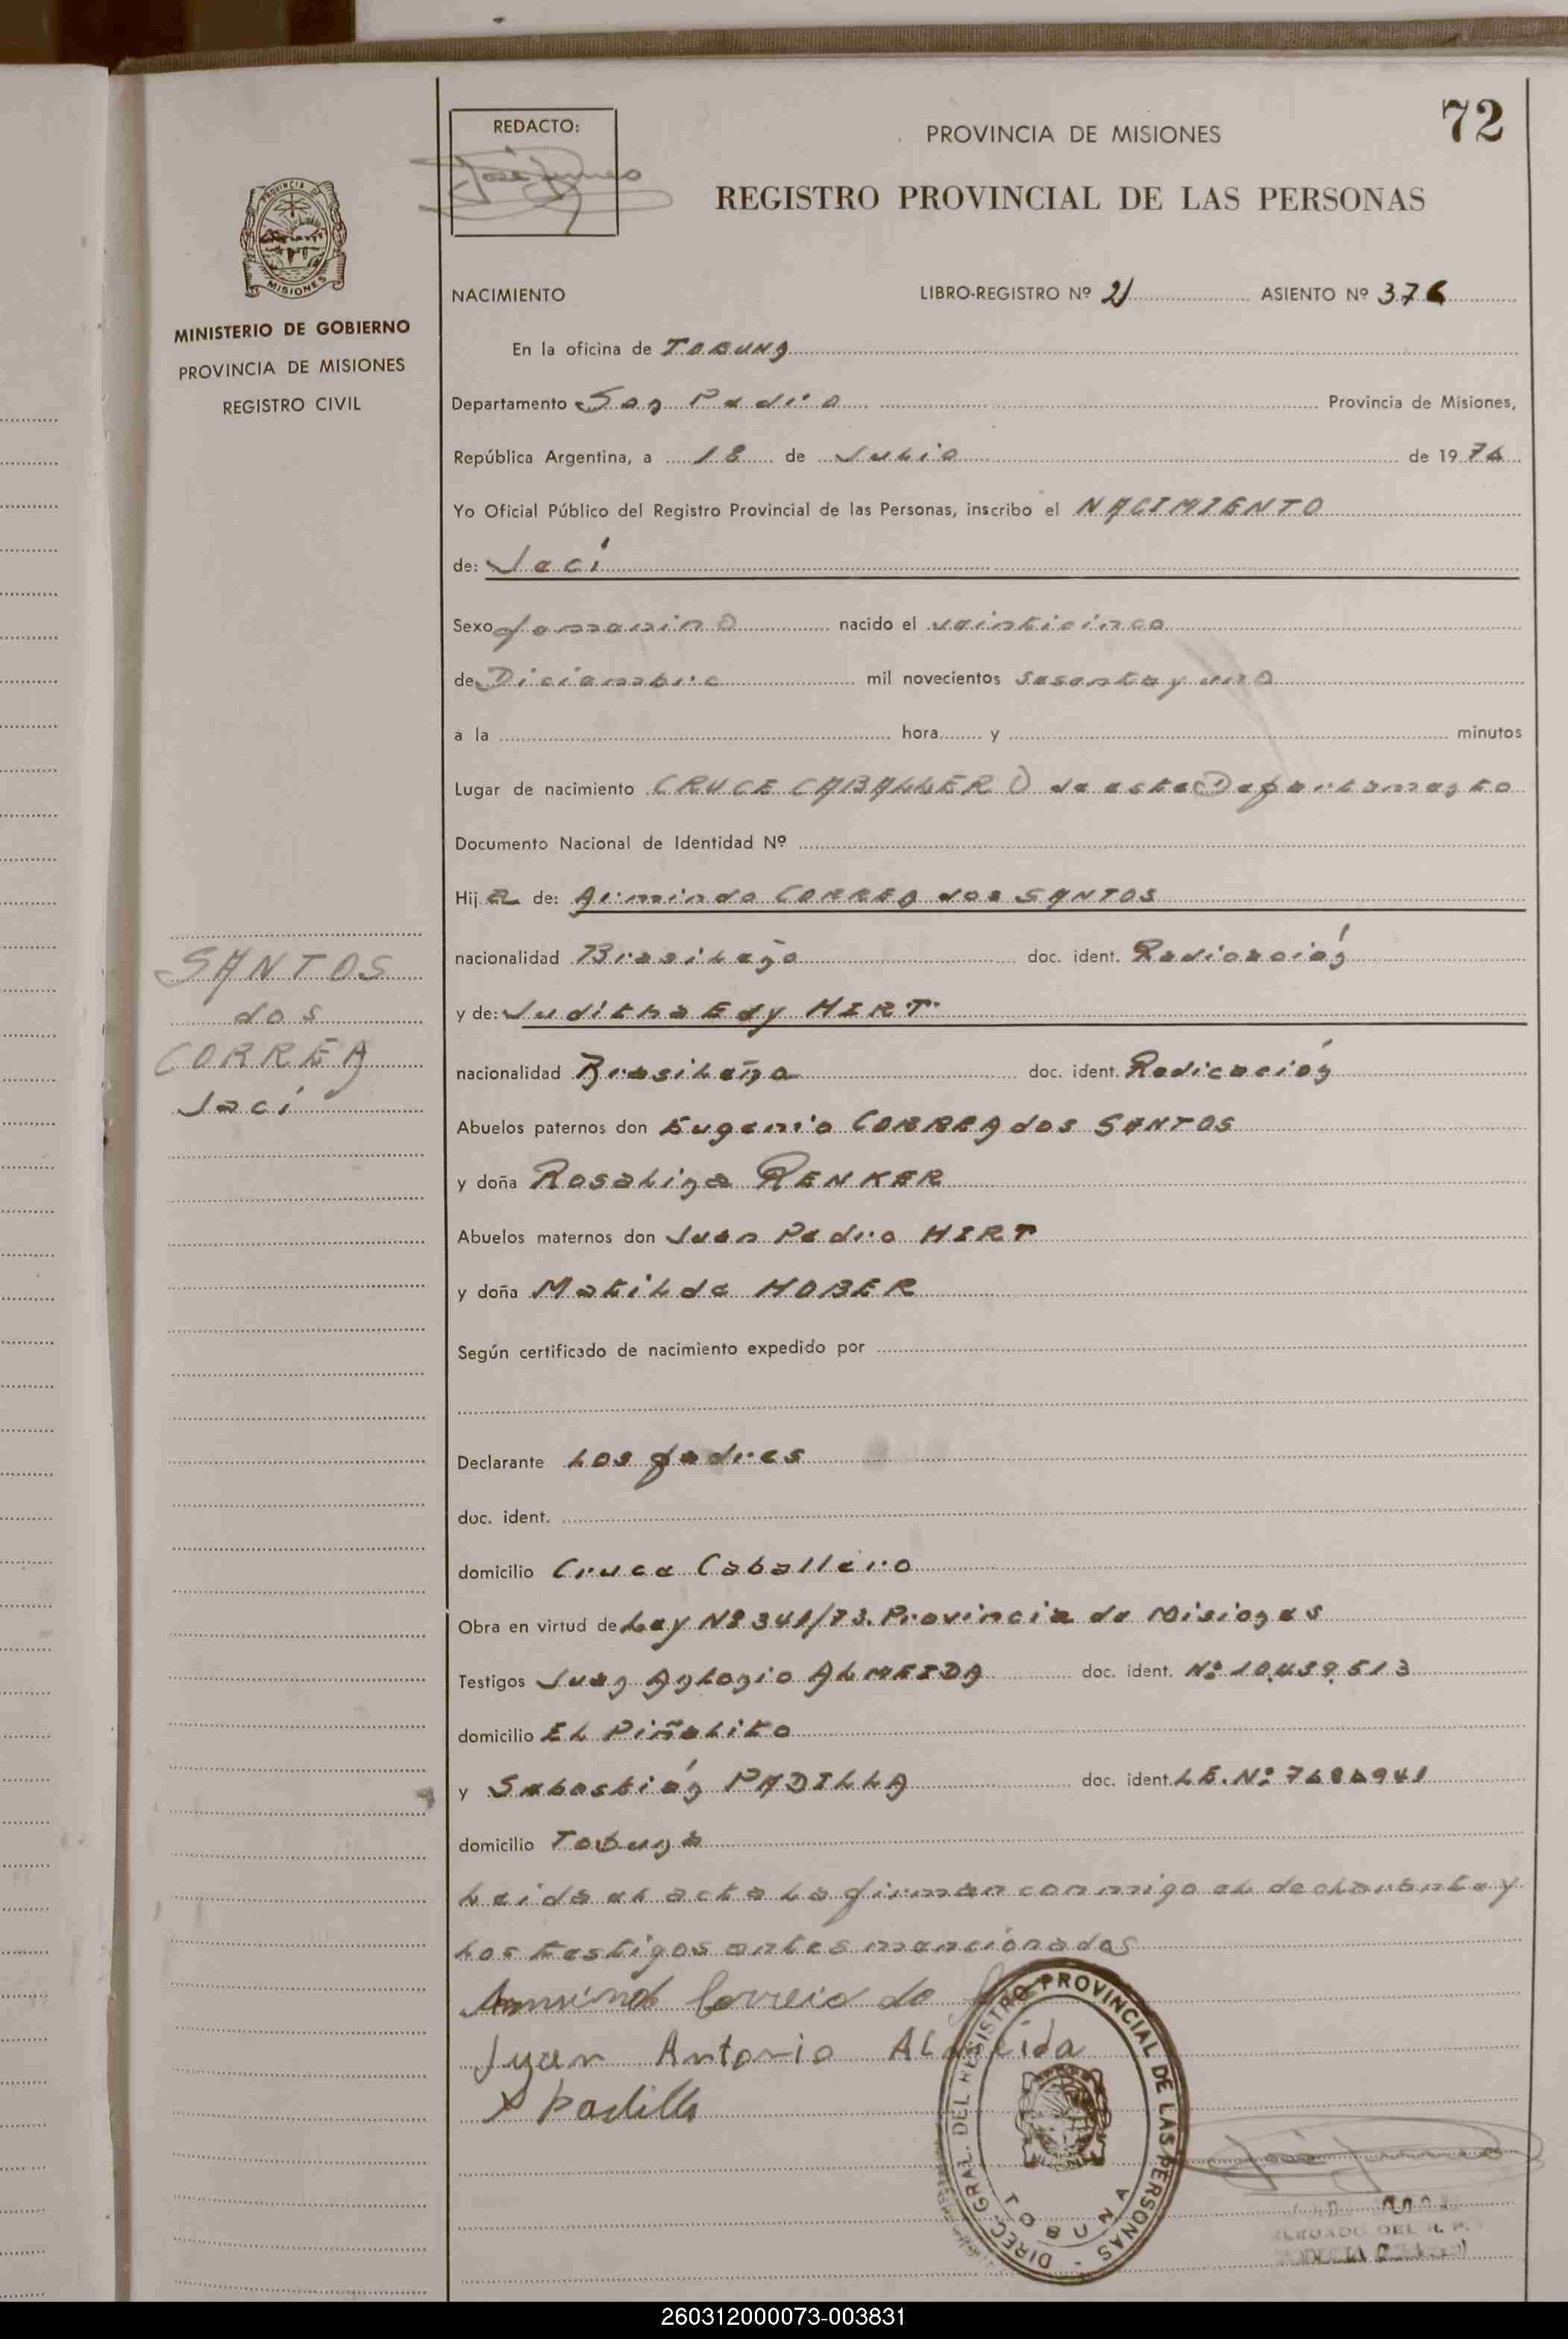 72
REDACTO:
PROVINCIA DE MISIONES
REGISTRO PROVINCIAL DE LAS PERSONAS
PROVINCIA DE
MISIONES
MINISTERIO DE GOBIERNO
PROVINCIA DE MISIONES
REGISTRO CIVIL
NACIMIENTO LIBRO-REGISTRO Nº 2 ASIENTO Nº 376
En la oficina de TOBUNA
Departamento San Pedro Provincia de Misiones,
República Argentina, a 18 de Julio de 19 76
Yo Oficial Público del Registro Provincial de las Personas, inscribo el NACIMIENTO
de: Jaci
Sexo femenino nacido el veinticinco
de Diciembre mil novecientos sesenta y uno
a la hora y minutos
Lugar de nacimiento CRUCE CABALLERO de este Departamento
Documento Nacional de Identidad Nº
Hij a de: Armindo CORREA dos SANTOS
nacionalidad Brasileño doc. ident. Radicación
y de: Juditha Edy HIRT
nacionalidad Brasileña doc. ident. Radicación
Abuelos paternos don Eugenio CORREA dos SANTOS
y doña Rosalina RENKER
Abuelos maternos don Juan Pedro HIRT
y doña Matilde HOBER
Según certificado de nacimiento expedido por
Declarante Los padres
doc. ident.
domicilio Cruce Caballero
Obra en virtud de Ley Nº 341/73. Provincia de Misiones
Testigos Juan Antonio ALMEIDA doc. ident. Nº 10.439.513
domicilio El Piñalito
y Sebastián PADILLA doc. ident. L.E. Nº
domicilio Tobuna
Leida el acta la firman conmigo el declarante y
los testigos antes mencionados
SANTOS
dos
CORREA
Jaci
Armindo Correia do
Juan Antonio Almeida
Padilla
DIREC. GRAL. DEL REGISTRO PROVINCIAL DE LAS PERSONAS - TOBUNA
DEL R. P.
260312000073-003831